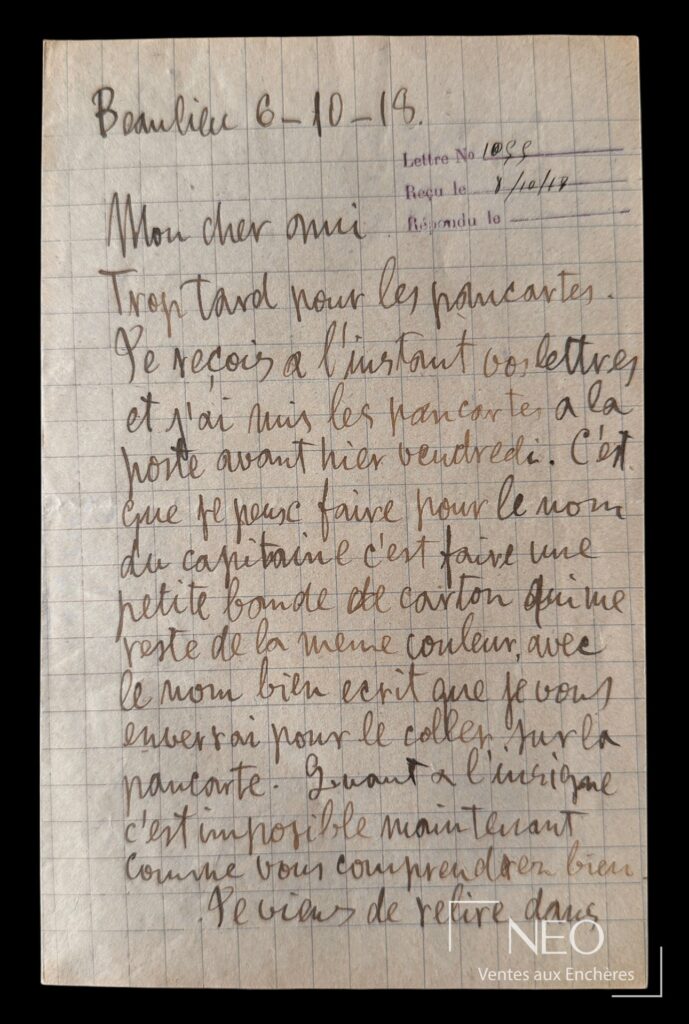 Beaulieu 6-10-18.
Lettre No 1099
Reçu le 8/10/18
Répondu le
Mon cher ami
Trop tard pour les pancartes.
Je reçois a l'instant vos lettres
et j'ai mis les pancartes a la
poste avant hier vendredi. C'est
que je peux faire pour le nom
du capitaine c'est faire une
petite bande de carton qui me
reste de la meme couleur, avec
le nom bien ecrit que je vous
enverrai pour le coller sur la
pancarte. Quant a l'insigne
c'est imposible maintenant
comme vous comprendrez bien.
Je viens de relire dans
NEO
Ventes aux Enchères